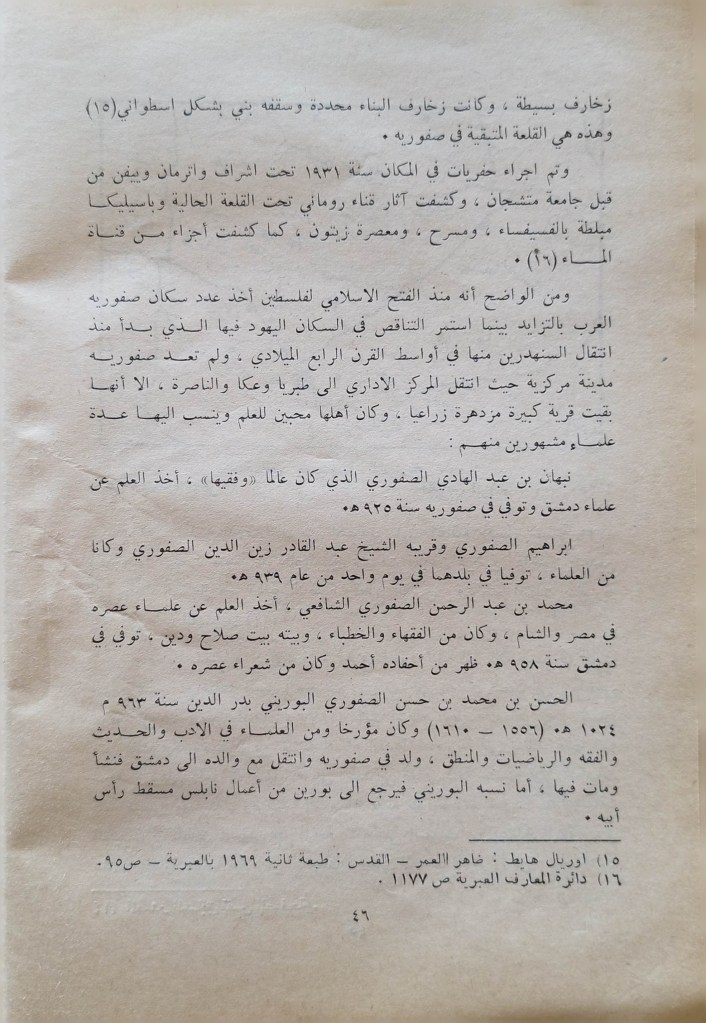 زخارف بسيطة ، وكانت زخارف البناء محددة وسقفه بني بشكل اسطواني(١٥)
وهذه هي القلعة المتبقية في صفوريه ٠
وتم اجراء حفريات في المكان سنة ١٩٣١ تحت اشراف واترمان وييفن من
قبل جامعة متشجان ، وكشفت آثار قناء روماني تحت القلعة الحالية وباسيليكا
مبلطة بالفسيفساء ، ومسرح ، ومعصرة زيتون ، كما كشفت أجزاء من قناة
المـاء (١٦) ٠
ومن الواضح أنه منذ الفتح الاسلامي لفلسطين أخذ عدد سكان صفوريه
العرب بالتزايد بينما استمر التناقص في السكان اليهود فيها الذي بدأ منذ
انتقال السنهدرين منها في أواسط القرن الرابع الميلادي ، ولم تعد صفوريه
مدينة مركزية حيث انتقل المركز الاداري الى طبريا وعكا والناصرة ، الا أنها
بقيت قرية كبيرة مزدهرة زراعيا ، وكان أهلها محبين للعلم وينسب اليها عدة
علماء مشهورين منهم :
نبهان بن عبد الهادي الصفوري الذي كان عالما «وفقيها» ، أخذ العلم عن
علماء دمشق وتوفي في صفوريه سنة ٩٢٥ هـ٠
ابراهيم الصفوري وقريبه الشيخ عبد القادر زين الدين الصفوري وكانا
من العلماء ، توفيا في بلدهما في يوم واحد من عام ٩٣٩ هـ٠
محمد بن عبد الرحمن الصفوري الشافعي ، أخذ العلم عن علماء عصره
في مصر والشام ، وكان من الفقهاء والخطباء ، وبيته بيت صلاح ودين ، توفي في
دمشق سنة ٩٥٨ هـ٠ ظهر من أحفاده أحمد وكان من شعراء عصره ٠
الحسن بن محمد بن حسن الصفوري البوريني بدر الدين سنة ٩٦٣ م
١٠٢٤ هـ٠ (١٥٥٦ – ١٦١٠) وكان مؤرخا ومن العلماء في الادب والحديث
والفقه والرياضيات والمنطق ، ولد في صفوريه وانتقل مع والده الى دمشق فنشأ
ومات فيها ، أما نسبه البوريني فيرجع الى بورين من أعمال نابلس مسقط رأس
أبيه ٠
١٥) اوريال هايط : ضاهر االعمر – القدس : طبعة ثانية ١٩٦٩ بالعبرية – ص٩٥٠
١٦) دائرة المعارف العبرية ص ١١٧٧ .
٤٦